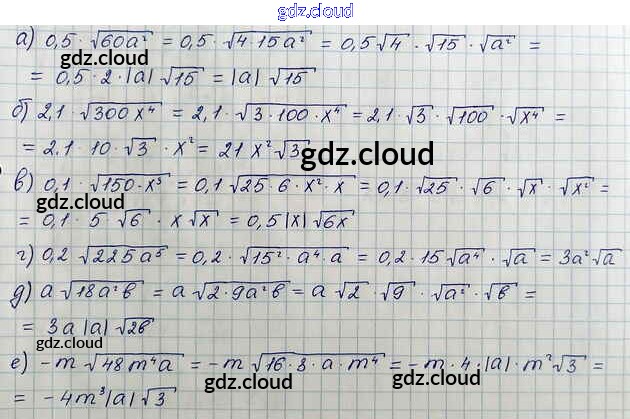 gdz.cloud
а) 0,5 · √60a² = 0,5 · √4·15a² = 0,5√4 · √15 · √a² =
gdz.cloud
= 0,5 · 2 · |a| √15 = |a| √15
gdz.cloud
б) 2,1 · √300x⁴ = 2,1 · √3·100·x⁴ = 2,1 · √3 · √100 · √x⁴ =
= 2,1 · 10 · √3 · x² = 21 x² √3
gdz.cloud
в) 0,1 · √150·x³ = 0,1 √25·6·x²·x = 0,1 · √25 · √6 · √x · √x² =
gdz.cloud
gdz.cloud
= 0,1 · 5 √6 · x √x = 0,5|x| √6x
г) 0,2 √225a⁵ = 0,2 · √15²·a⁴·a = 0,2 · 15 √a⁴ · √a = 3a² √a
д) a √18a²b = a √2·9a²b = a √2 · √9 · √a² · √b =
= 3a |a| √2b
gdz.cloud
е) -m √48m⁴a = -m √16·3·a·m⁴ = -m · 4 · |a| · m² √3 =
gdz.cloud
gdz.cloud
gdz.cloud
= -4m³|a| √3